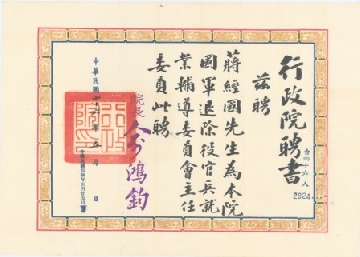 行政院聘書
茲聘
蔣經國先生為本院
國軍退除役官兵就
業輔導委員會主任
委員此聘
院長 俞鴻鈞
中華民國
年
月
日
2024